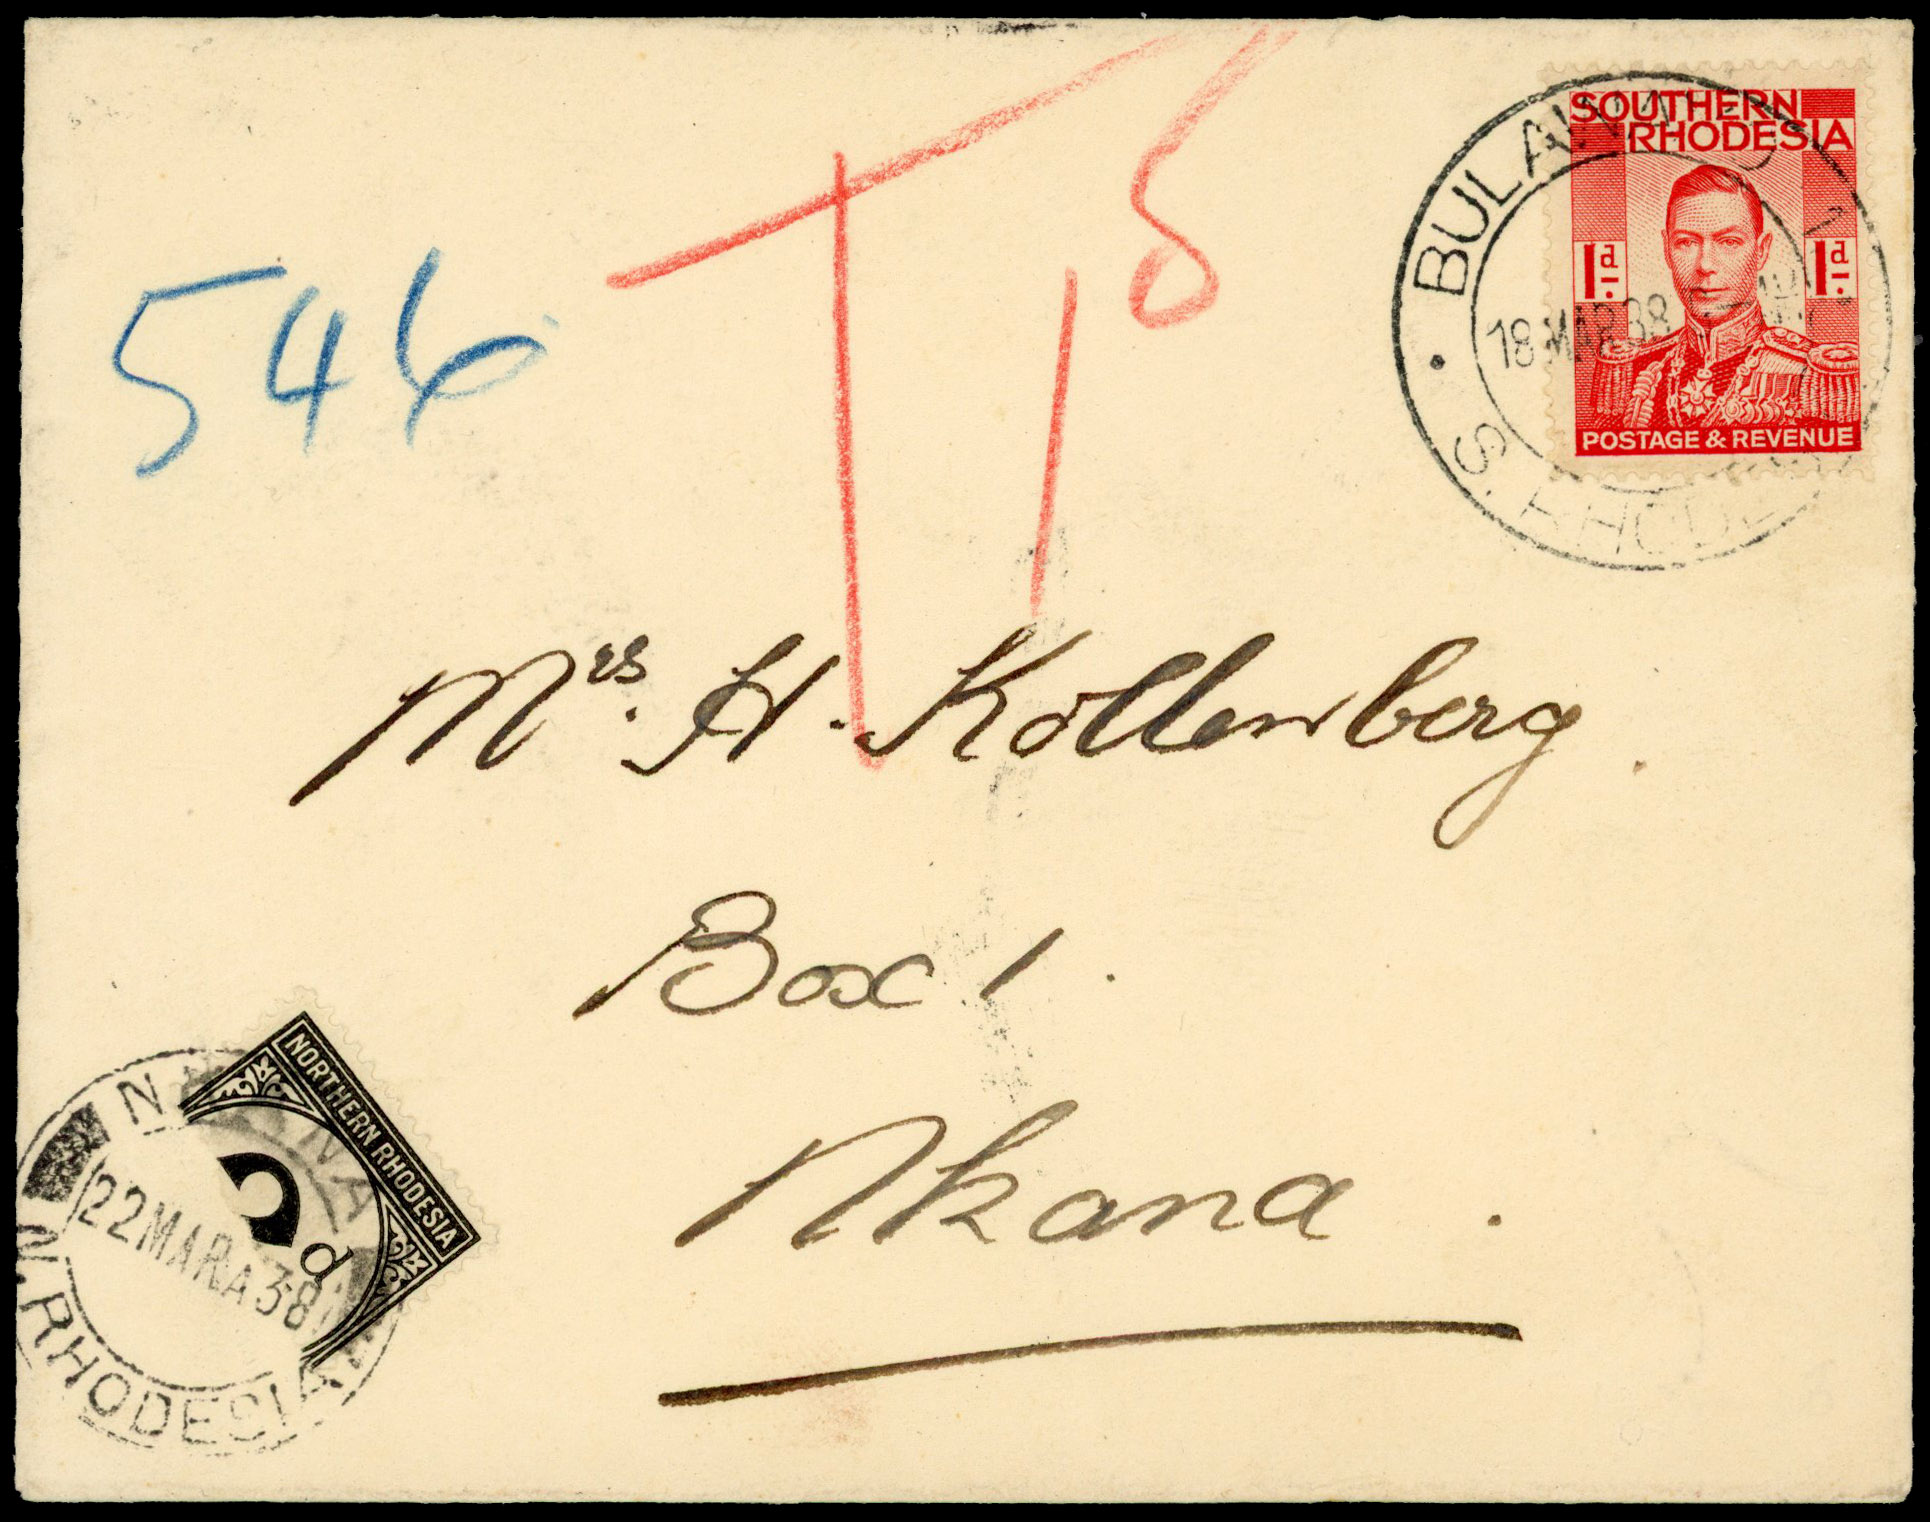 SOUTHERN
RHODESIA
1d. 1d.
POSTAGE & REVENUE
BULAWAYO 1
18 MAR 38
S. RHODESIA
T 18
546
Mrs. H. Kollenberg.
Box 1.
Nkana.
NORTHERN RHODESIA
d
NKANA
22 MAR A 38
N. RHODESIA